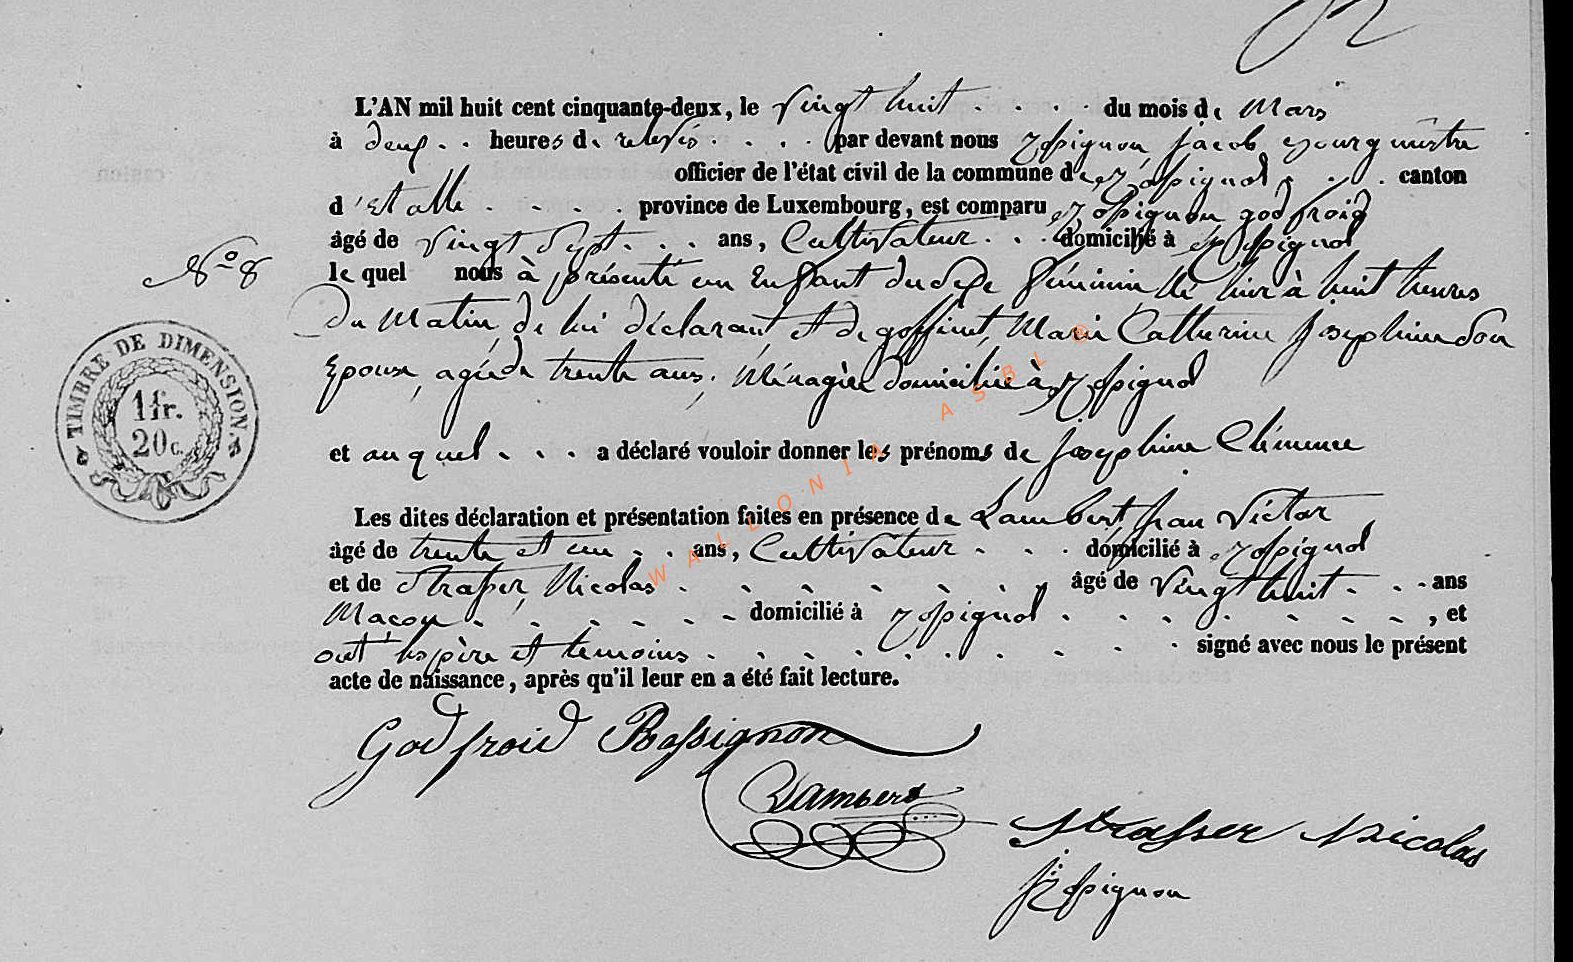 L'AN mil huit cent cinquante-deux, le vingt huit . . . . du mois de Mars
à deux . . heures de relevés . . . . par devant nous Rossignon, Jacob, Bourgmestre
officier de l'état civil de la commune de Rossignol . . . canton
d'Etalle . . . . province de Luxembourg, est comparu Rossignon godfroid
âgé de vingt sept . . . ans, Cultivateur . . . domicilié à Rossignol
N° 8
lequel nous à présenté un Enfant du sexe féminin, né hier à huit heures
Du Matin, de lui déclarant, et de goffinet, Marie Catherine Josephine Son
Epouse, agée de trente ans, Ménagère domiciliée à Rossignol
TIMBRE DE DIMENSION.
1 fr.
20 c.
et auquel . . . a déclaré vouloir donner les prénoms de Josephine Clémence
Les dites déclaration et présentation faites en présence de Lambert, jean Victor
âgé de trente et un . . ans, Cultivateur . . . domicilié à Rossignol
et de Strasser, Nicolas . . . . . . . âgé de vingt huit . . . ans
Maçon . . . . . . domicilié à Rossignol . . . . . . . , et
ont les père et temoins . . . . . . . . . . signé avec nous le présent
acte de naissance, après qu'il leur en a été fait lecture.
Godfroid Rossignon
Lambert
Strasser Nicolas
J. Rossignon
WALLONIA ASBL ©